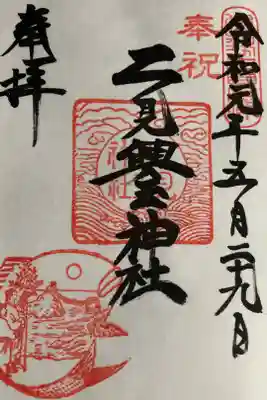 奉祝
令和元年五月二十九日
二見興玉神社
奉拝